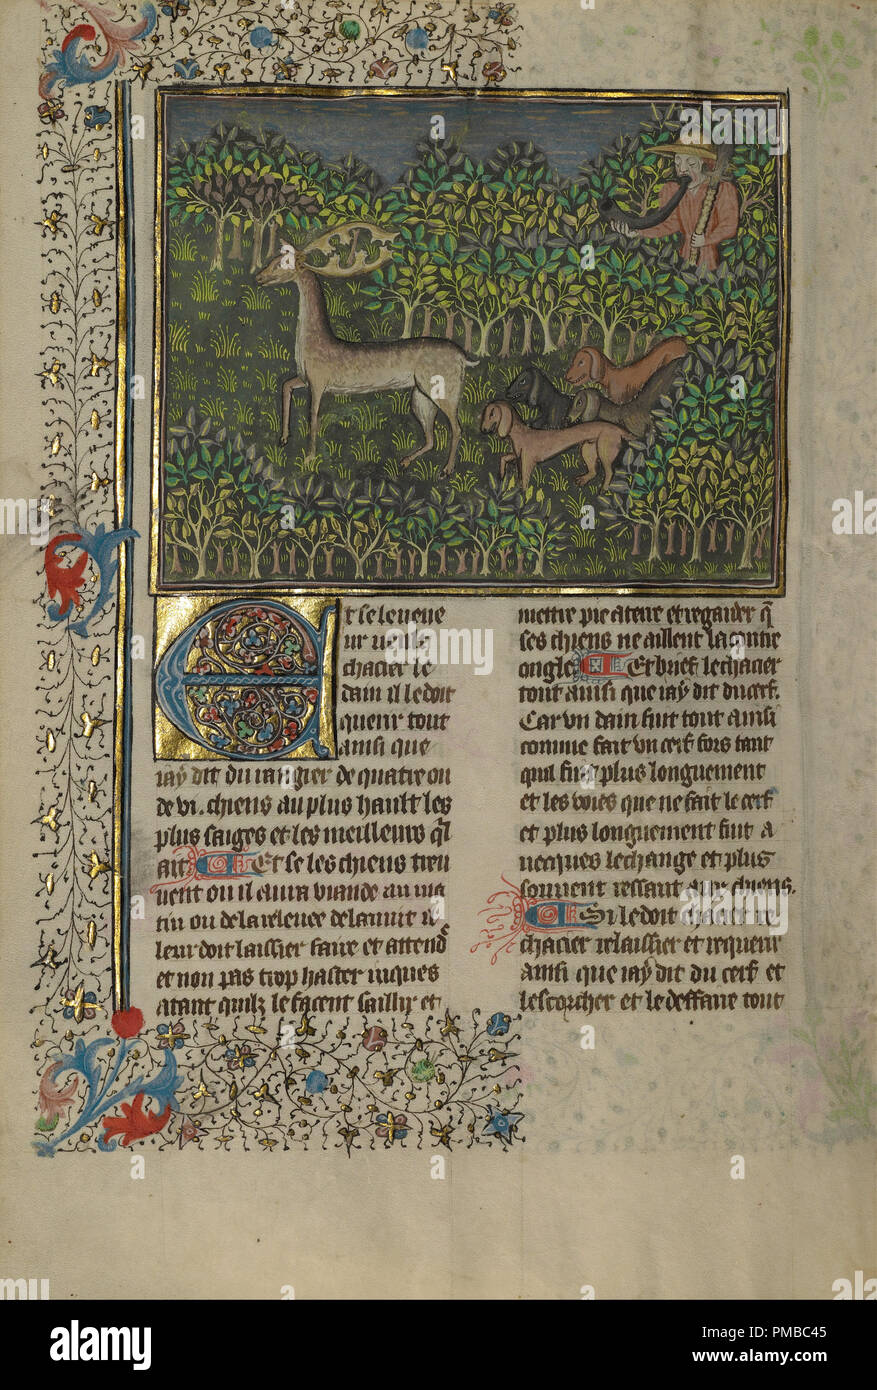 Et se le veneur
ur veult
chacier le
dain il le doit
querir tout
ainsi que
iay dit du rangier de quatre ou
de vi. chiens au plus hault les
plus saiges et les meilleurs ql
ait Et se les chiens treu
uent ou il aura viande au ma
tin ou de la releuee de la nuit il
leur doit laissier faire et attendr
et non pas trop haster iusques
atant quilz le facent saillir et
mettre pie a terre et regarder q
ses chiens ne aillent la contre
ongle Et brief le chacier
tout ainsi que iay dit du cerf.
Car vn dain fuit tout ainsi
comme fait vn cerf fors tant
quil fuit plus longuement
et les voies que ne fait le cerf
et plus longuement fuit a
uecques le change et plus
souuent ressaut aux chiens.
Si le doit chacier re
chacier relaissier et requerir
ainsi que iay dit du cerf et
lescorcher et le deffaire tout
alamy
Image ID: PMBC45
www.alamy.com